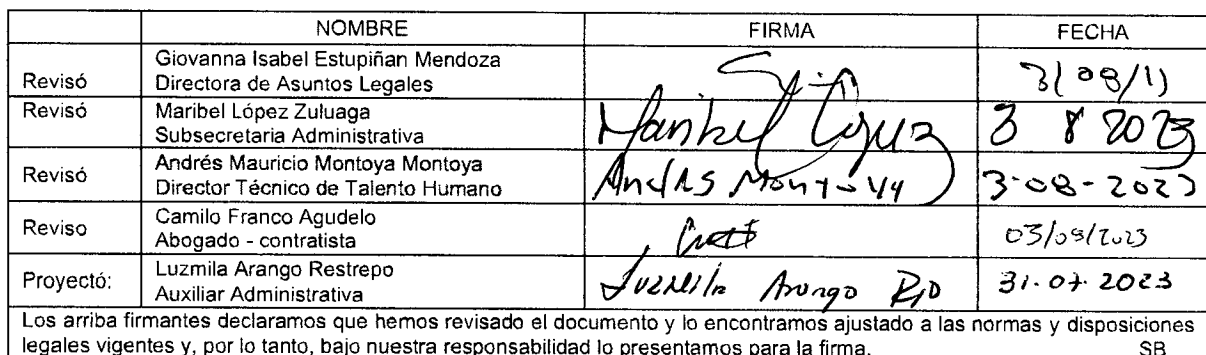 NOMBRE FIRMA FECHA
Giovanna Isabel Estupiñan Mendoza
Revisó Directora de Asuntos Legales
Revisó Maribel López Zuluaga Maribel López 3 8 2023
Subsecretaria Administrativa
Andrés Mauricio Montoya Montoya
Revisó Director Técnico de Talento Humano Andrés Montoya 3-08-2023
Camilo Franco Agudelo
Reviso Abogado - contratista 03/08/2023
Luzmila Arango Restrepo
Proyectó: Auxiliar Administrativa Luzmila Arango 31.07.2023
Los arriba firmantes declaramos que hemos revisado el documento y lo encontramos ajustado a las normas y disposiciones
legales vigentes y, por lo tanto, bajo nuestra responsabilidad lo presentamos para la firma. SB